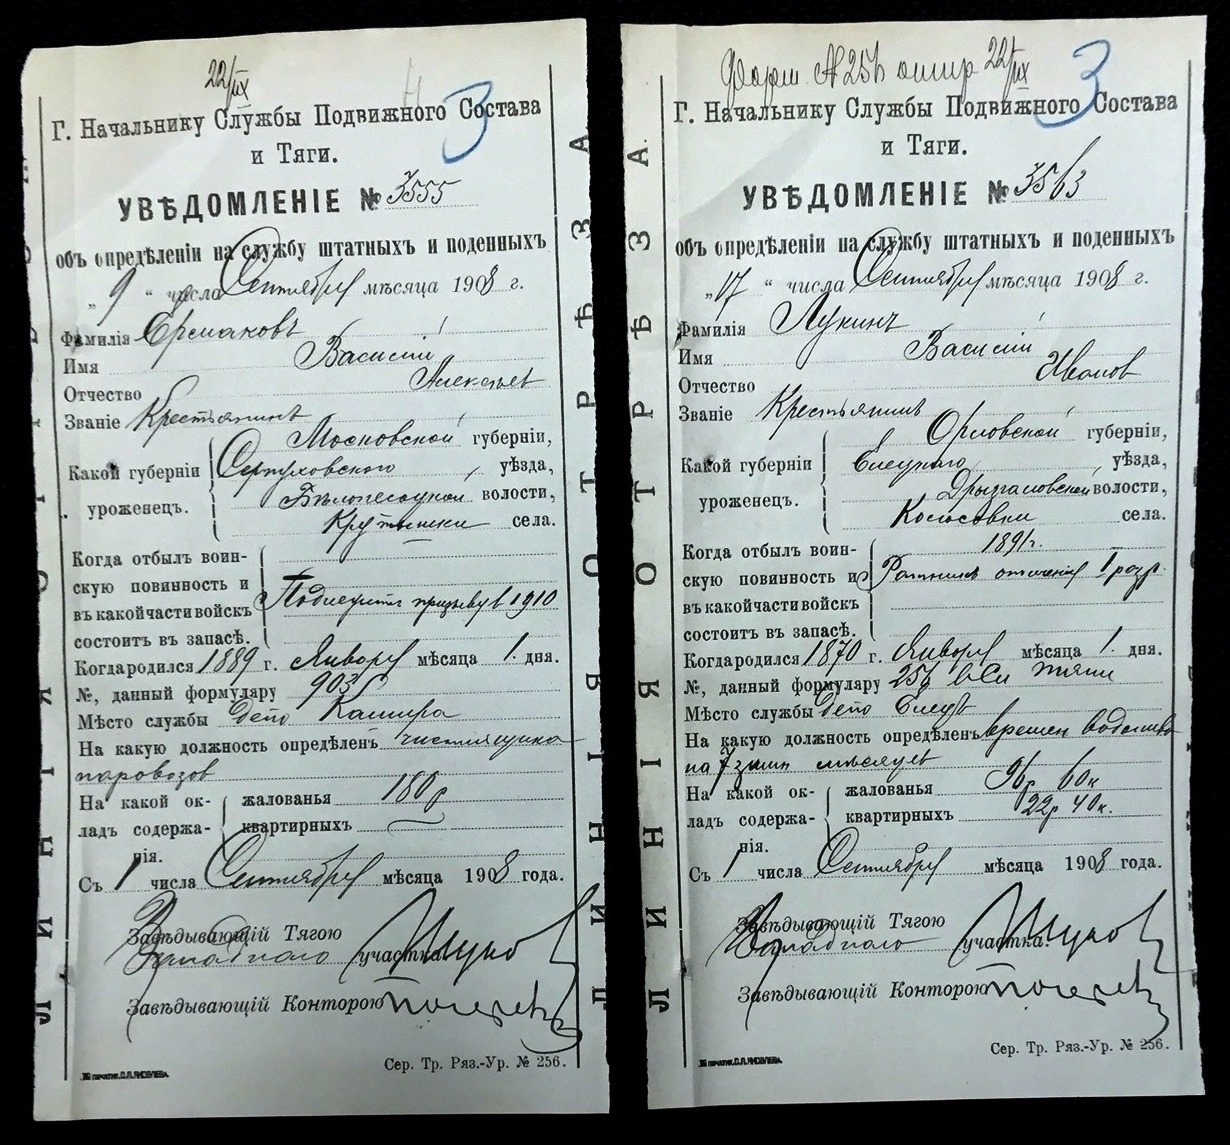 22/IX
3
Г. Начальнику Службы Подвижного Состава
и Тяги.
УВѢДОМЛЕНІЕ № 3555
объ опредѣленіи на службу штатныхъ и поденныхъ
„ 9 “ числа Сентября мѣсяца 1908 г.
Фамилія Ермаковъ
Имя Василій
Отчество Алексѣев
Званіе Крестьянинъ
Какой губерніи уроженецъ.
Московской губерніи,
Серпуховского уѣзда,
Бѣлопесоцкой волости,
Крутышки села.
Когда отбылъ воин-
скую повинность и
въ какой части войскъ
состоитъ въ запасѣ.
Подлежитъ призыву в 1910
Когда родился 1889 г. Января мѣсяца 1. дня.
№, данный формуляру 903
Мѣсто службы депо Кашира
На какую должность опредѣленъ чистильщика
паровозов
На какой ок-
ладъ содержа-
нія.
жалованья 180 р
квартирныхъ
Съ 1 числа Сентября мѣсяца 1908 года.
Завѣдывающій Тягою
Западного участка
Завѣдывающій Конторою
Сер. Тр. Ряз.-Ур. № 256.
ЛИНІЯ ОТРѢЗА.
22/IX
3
Г. Начальнику Службы Подвижного Состава
и Тяги.
УВѢДОМЛЕНІЕ № 3563
объ опредѣленіи на службу штатныхъ и поденныхъ
„17 “ числа Сентября мѣсяца 1908 г.
Фамилія Лукинъ
Имя Василій
Отчество Иванов
Званіе Крестьянинъ
Какой губерніи уроженецъ.
Орловской губерніи,
Елецкаго уѣзда,
волости,
Колосовки села.
Когда отбылъ воин-
скую повинность и
въ какой части войскъ
состоитъ въ запасѣ.
1891г.
Ратникъ ополченія 1 разр.
Когда родился 1870 г. Января мѣсяца 1. дня.
№, данный формуляру 256 тяги
Мѣсто службы депо Елецъ
На какую должность опредѣленъ времен водолива
на 7 зимн мѣсяцев
На какой ок-
ладъ содержа-
нія.
жалованья 96р 60к
квартирныхъ 22р 40к.
Съ 1 числа Сентября мѣсяца 1908 года.
Завѣдывающій Тягою
Западного участка
Завѣдывающій Конторою
Сер. Тр. Ряз.-Ур. № 256.